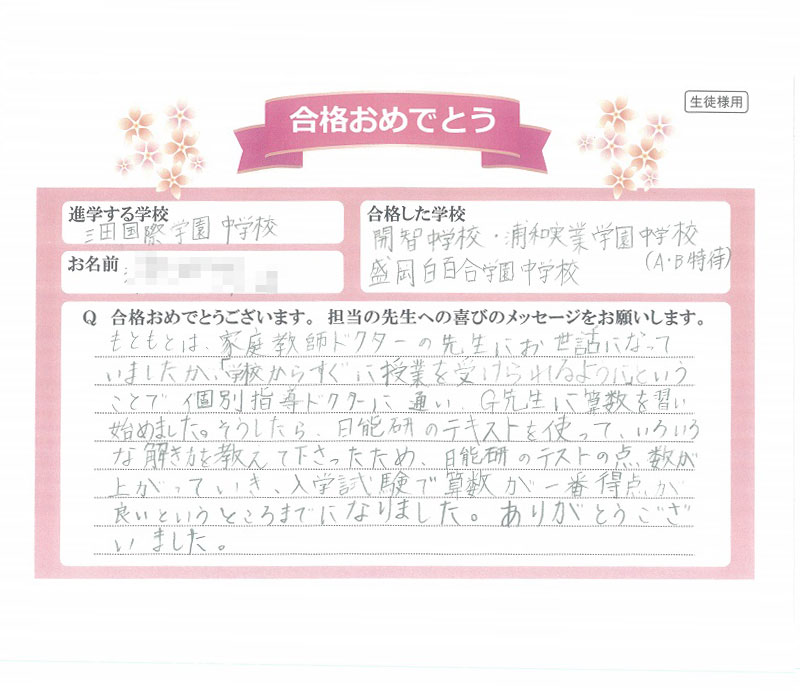 生徒様用
合格おめでとう
進学する学校
三田国際学園中学校
お名前
合格した学校
開智中学校・浦和実業学園中学校
(A・B特待)
盛岡白百合学園中学校
Q 合格おめでとうございます。担当の先生への喜びのメッセージをお願いします。
もともとは、家庭教師ドクターの先生にお世話になって
いましたが、「学校からすぐに授業を受けられるように」という
ことで個別指導ドクターに通い G先生に算数を習い
始めました。そうしたら、日能研のテキストを使って、いろいろ
な解き方を教えて下さったため、日能研のテストの点数が
上がっていき、入学試験で算数が一番得点が
良いというところまでになりました。ありがとうござ
いました。